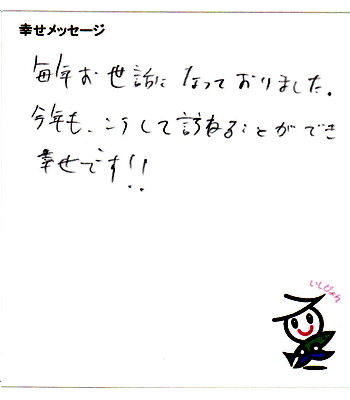 幸せメッセージ
毎年お世話になっておりました。
今年も、こうして訪ねることができ
幸せです!!